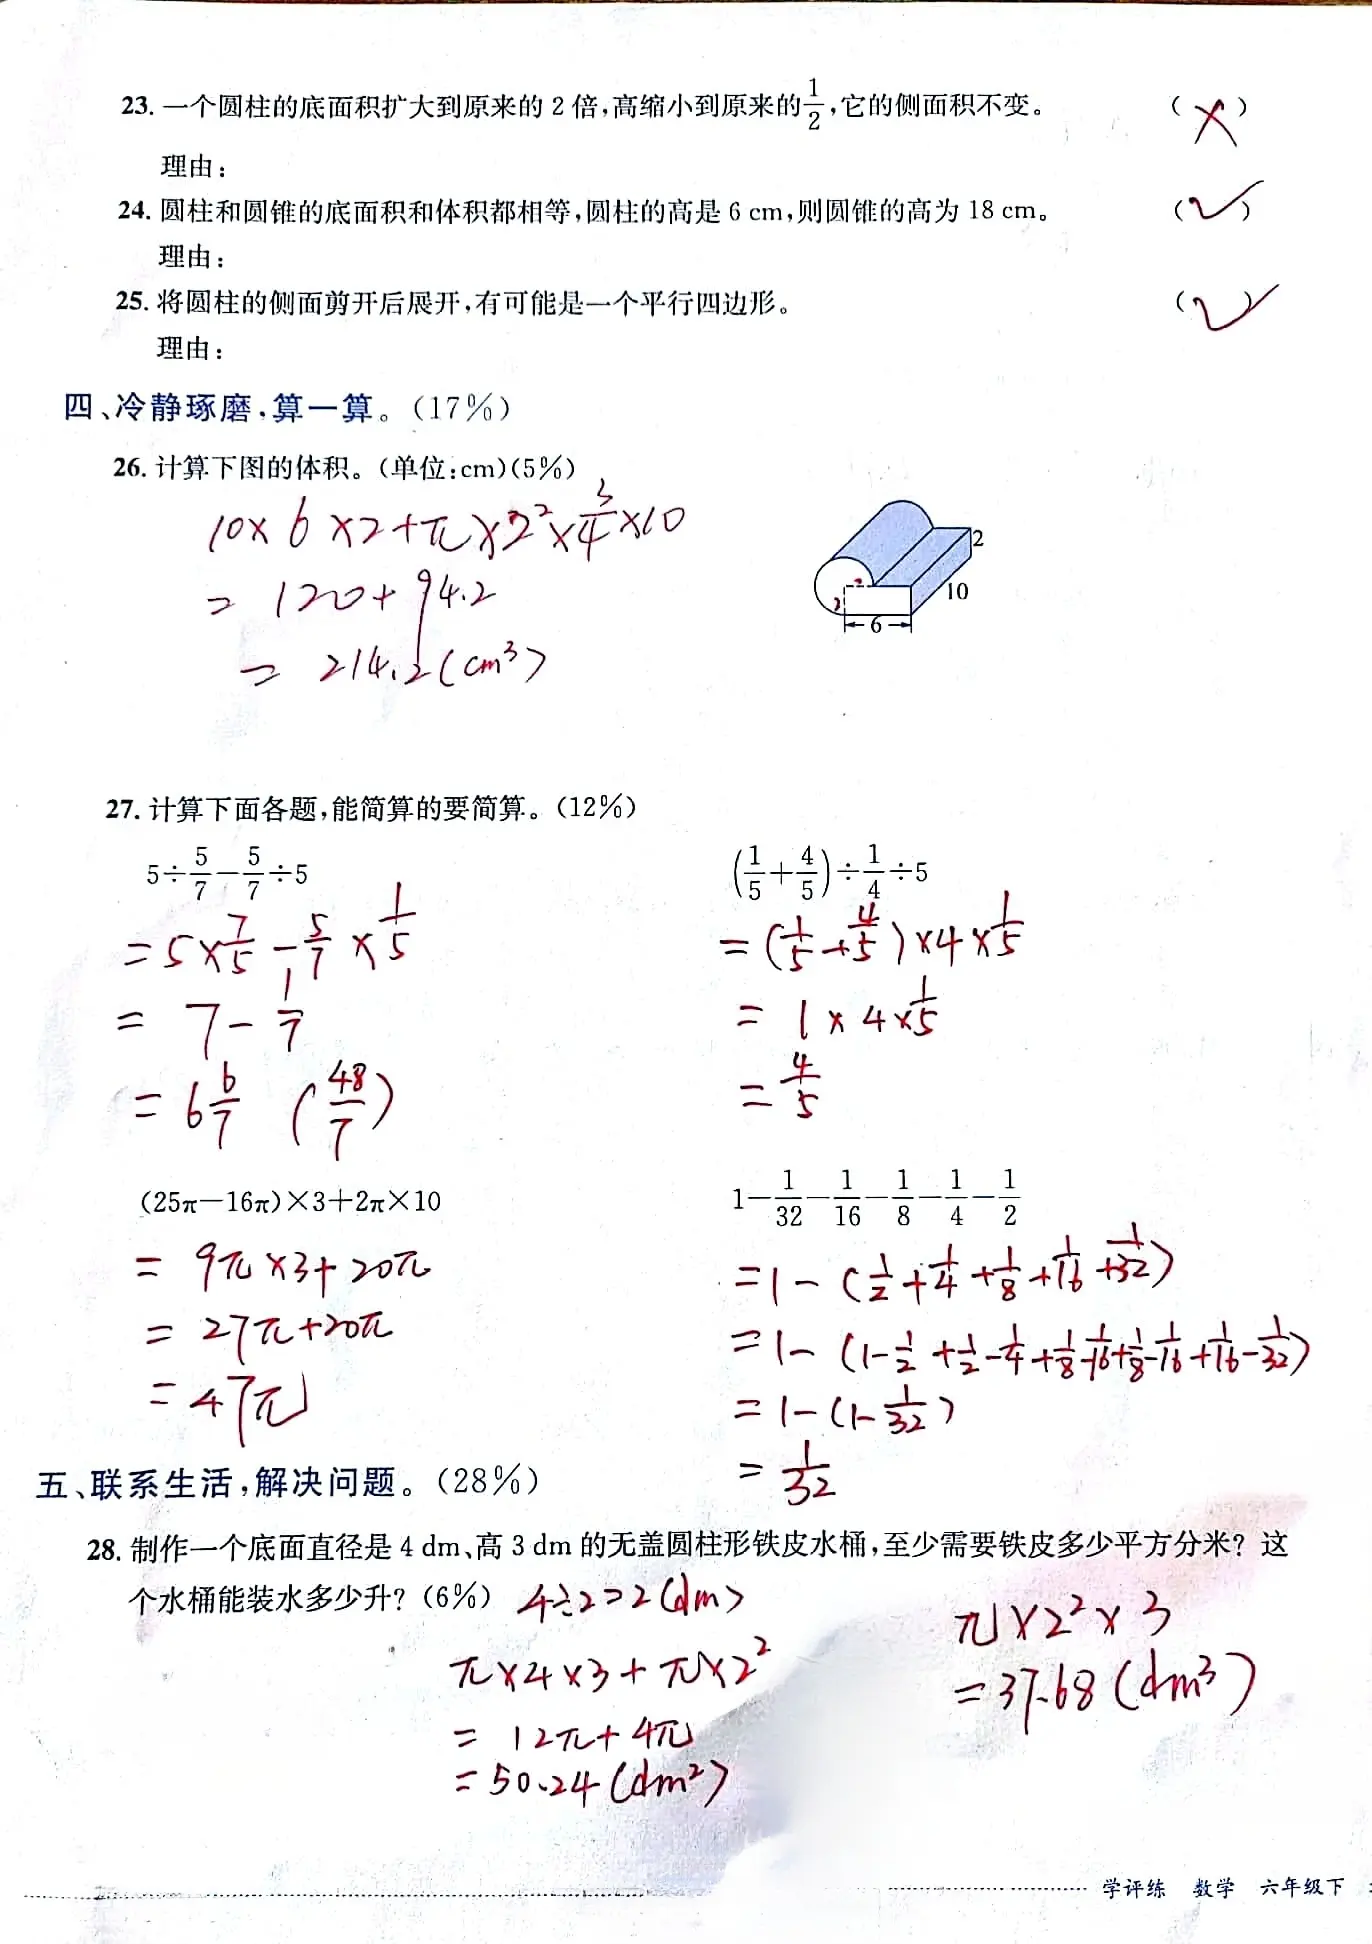 23. 一个圆柱的底面积扩大到原来的 2 倍,高缩小到原来的1/2,它的侧面积不变。 (×)
理由:
24. 圆柱和圆锥的底面积和体积都相等,圆柱的高是 6 cm,则圆锥的高为 18 cm。 (✓)
理由:
25. 将圆柱的侧面剪开后展开,有可能是一个平行四边形。 (✓)
理由:
四、冷静琢磨,算一算。(17%)
26. 计算下图的体积。(单位:cm)(5%)
10×6×2+π×2²×3/4×10
=120+94.2
=214.2(cm³)
2
2
2
10
6
27. 计算下面各题,能简算的要简算。(12%)
5÷5/7−5/7÷5
=5×7/5−5/7×1/5
=7−1/7
=6 6/7 (48/7)
(1/5+4/5)÷1/4÷5
=(1/5+4/5)×4×1/5
=1×4×1/5
=4/5
(25π−16π)×3+2π×10
=9π×3+20π
=27π+20π
=47π
1−1/32−1/16−1/8−1/4−1/2
=1−(1/2+1/4+1/8+1/16+1/32)
=1−(1−1/2+1/2−1/4+1/8−1/16+1/8−1/16+1/16−1/32)
=1−(1−1/32)
=1/32
五、联系生活,解决问题。(28%)
28. 制作一个底面直径是 4 dm、高 3 dm 的无盖圆柱形铁皮水桶,至少需要铁皮多少平方分米? 这
个水桶能装水多少升?(6%) 4÷2=2(dm)
π×4×3+π×2²
=12π+4π
=50.24(dm²)
π×2²×3
=37.68(dm³)
学评练 数学 六年级下